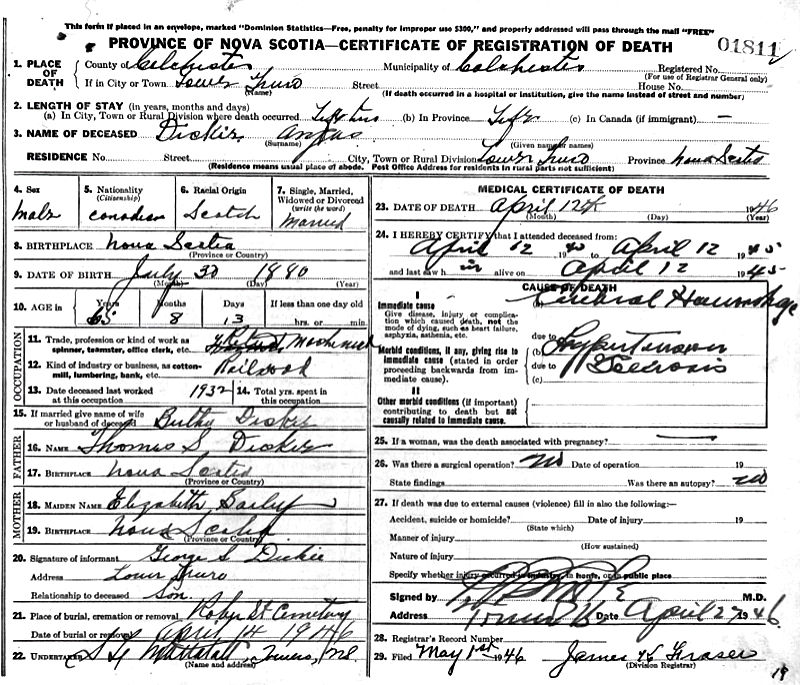 This form if placed in an envelope, marked "Dominion Statistics—Free, penalty for improper use $300," and properly addressed will pass through the mail "FREE"
PROVINCE OF NOVA SCOTIA—CERTIFICATE OF REGISTRATION OF DEATH
01811
1. PLACE OF DEATH
County of Colchester Municipality of Colchester Registered No.
(For use of Registrar General only)
If in City or Town Lower Truro Street House No.
(Name) (If death occurred in a hospital or institution, give the name instead of street and number)
2. LENGTH OF STAY (in years, months and days)
(a) In City, Town or Rural Division where death occurred (b) In Province Life (c) In Canada (if immigrant) —
3. NAME OF DECEASED Dickie Angus
(Surname) (Given name or names)
RESIDENCE No. Street City, Town or Rural Division Lower Truro Province Nova Scotia
(Residence means usual place of abode. Post Office Address for residents in rural parts not sufficient)
4. Sex
Male
5. Nationality
(Citizenship)
Canadian
6. Racial Origin
Scotch
7. Single, Married, Widowed or Divorced
(write the word)
Married
8. BIRTHPLACE Nova Scotia
(Province or Country)
9. DATE OF BIRTH July 30 1880
(Month) (Day) (Year)
10. AGE in Years Months Days If less than one day old
65 8 13 hrs. or min.
OCCUPATION
11. Trade, profession or kind of work as Machinest
spinner, teamster, office clerk, etc.
12. Kind of industry or business, as cotton- Railroad
mill, lumbering, bank, etc.
13. Date deceased last worked at this occupation 1932
14. Total yrs. spent in this occupation
15. If married give name of wife or husband of deceased Dickie
FATHER
16. NAME Thomas S Dickie
17. BIRTHPLACE Nova Scotia
(Province or Country)
MOTHER
18. MAIDEN NAME Elizabeth
19. BIRTHPLACE Nova Scotia
(Province or Country)
20. Signature of informant George S Dickie
Address Lower Truro
Relationship to deceased Son.
21. Place of burial, cremation or removal Robie St Cemetery
Date of burial or removal April 14 1946
22. UNDERTAKER Mattatall, Truro, NS
(Name and address)
MEDICAL CERTIFICATE OF DEATH
23. DATE OF DEATH April 12th 1946
(Month) (Day) (Year)
24. I HEREBY CERTIFY that I attended deceased from:
April 12 19 to April 12 1945
and last saw h im alive on April 12 1945
CAUSE OF DEATH
I
Immediate cause
Give disease, injury or complication which caused death, not the mode of dying, such as heart failure, asphyxia, asthenia, etc.
Cerebral Haemorrhage
due to
Morbid conditions, if any, giving rise to immediate cause (stated in order proceeding backwards from immediate cause).
(b) Hypertension
due to Sclerosis
(c)
II
Other morbid conditions (if important) contributing to death but not causally related to immediate cause.
25. If a woman, was the death associated with pregnancy? —
26. Was there a surgical operation? No Date of operation 19
State findings Was there an autopsy? no
27. If death was due to external causes (violence) fill in also the following:—
Accident, suicide or homicide? Date of injury 19
(State which)
Manner of injury
(How sustained)
Nature of injury
Specify whether injury occurred in industry, in home, or in public place
Signed by M.D.
Address Truro Date April 27 1946
28. Registrar's Record Number
29. Filed May 1st 1946 James K Fraser
(Division Registrar)
19